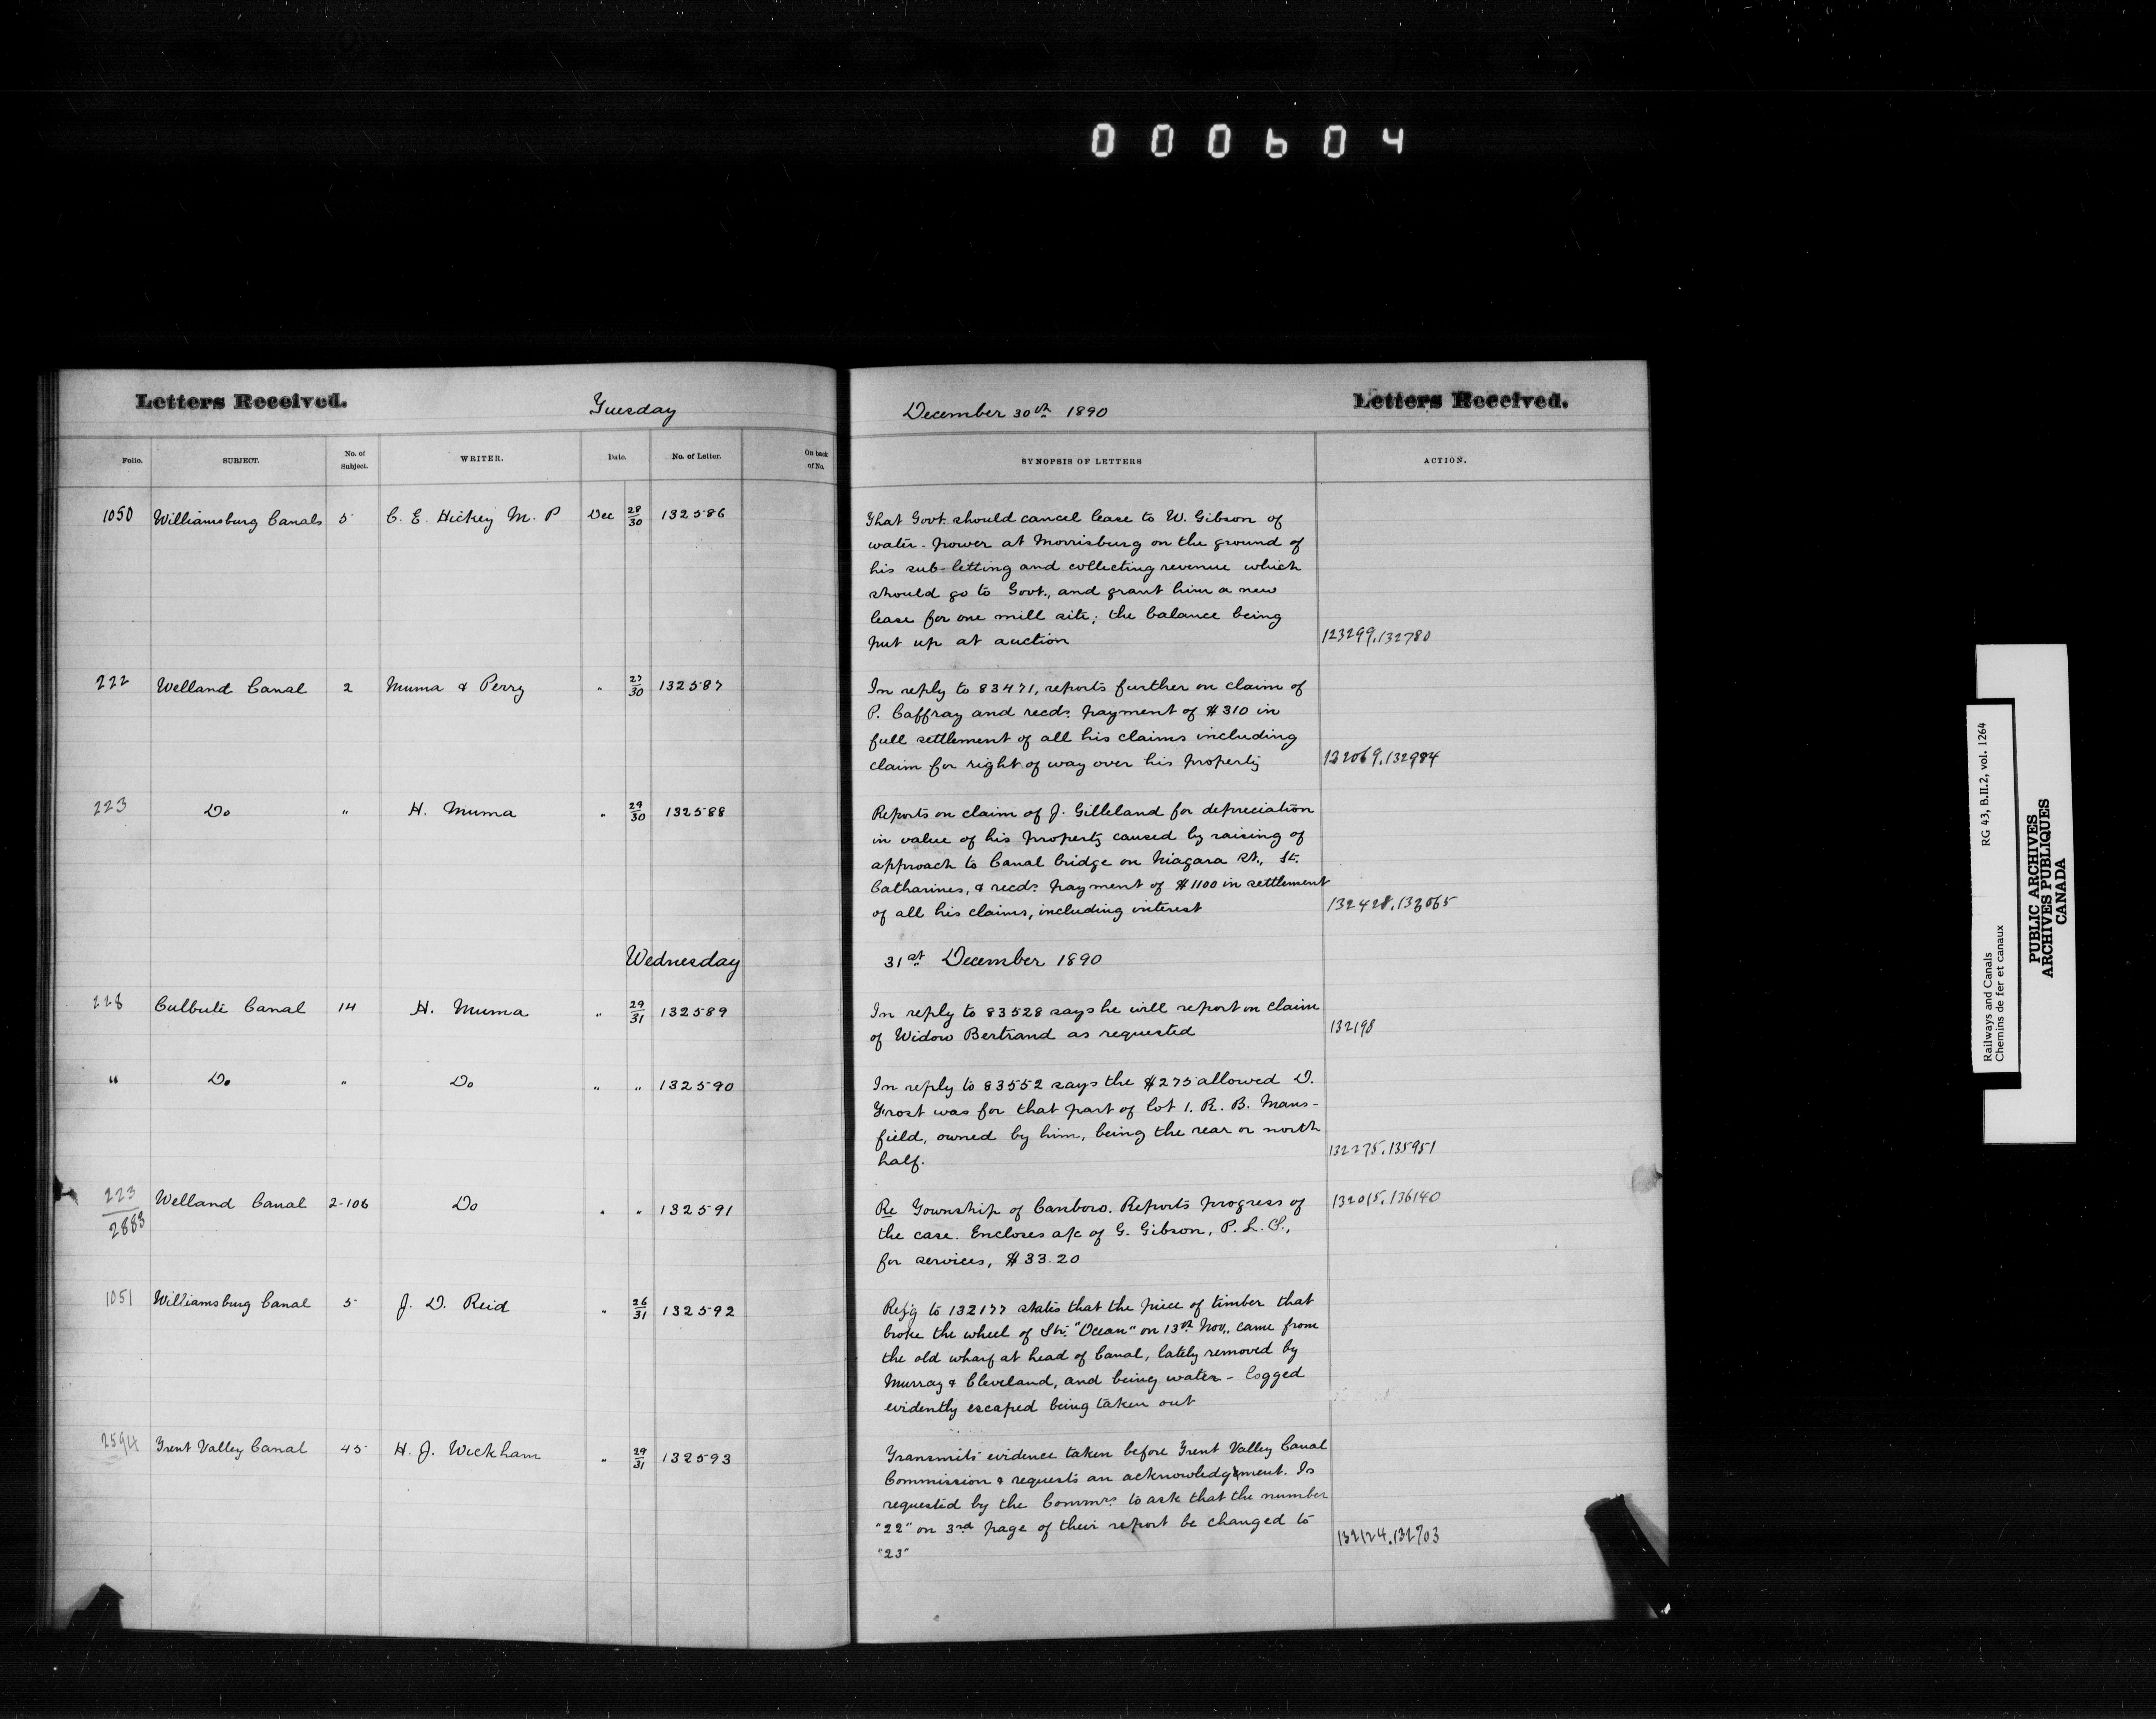 000604
Letters Received.
Tuesday
December 30th 1890
Letters Received.
Folio. SUBJECT. No. of Subject. WRITER. Date. No. of Letter. On back of No. SYNOPSIS OF LETTERS ACTION.
1050 Williamsburg Canals 5 C. E. Hickey M. P Dec 28/30 132586
That Govt. should cancel lease to W. Gibson of
water-power at Morrisburg on the ground of
his sub-letting and collecting revenue which
should go to Govt., and grant him a new
lease for one mill site; the balance being
put up at auction 123299.132780
222 Welland Canal 2 Muma & Perry " 27/30 132587
In reply to 83471, reports further on claim of
P. Caffray and recds. payment of $310 in
full settlement of all his claims including
claim for right of way over his property 122069.132984
223 Do " H. Muma " 29/30 132588
Reports on claim of J. Gilleland for depreciation
in value of his property caused by raising of
approach to Canal bridge on Niagara St., St.
Catharines, & recds. payment of $1100 in settlement
of all his claims, including interest 132428.133065
Wednesday 31st December 1890
228 Culbute Canal 14 H. Muma " 29/31 132589
In reply to 83528 says he will report on claim
of Widow Bertrand as requested 132198
" Do " Do " " 132590
In reply to 83552 says the $275 allowed D.
Frost was for that part of lot 1. R. B. Mans-
field, owned by him, being the rear or north
half. 132275.135951
223/2883 Welland Canal 2-106 Do " " 132591
Re Township of Canboro. Reports progress of 132015.136140
the case. Encloses a/c of G. Gibson, P. L. S.,
for services, $33.20
1051 Williamsburg Canal 5 J. D. Reid " 26/31 132592
Refg to 132177 states that the piece of timber that
broke the wheel of Str. "Ocean" on 13th Nov., came from
the old wharf at head of Canal, lately removed by
Murray & Cleveland, and being water-logged
evidently escaped being taken out
2594 Trent Valley Canal 45 H. J. Wickham " 29/31 132593
Transmits evidence taken before Trent Valley Canal
Commission & requests an acknowledgment. Is
requested by the Commrs. to ask that the number
"22" on 3rd page of their report be changed to
"23" 132124.132703
Railways and Canals RG 43, B.II.2, vol. 1264
Chemins de fer et canaux
PUBLIC ARCHIVES
ARCHIVES PUBLIQUES
CANADA